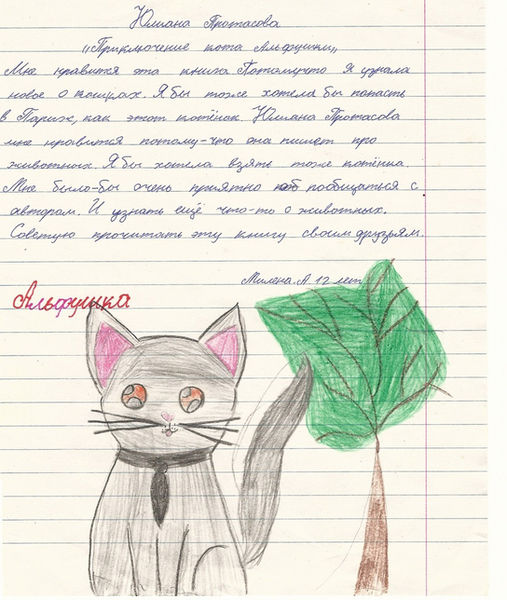 Юлиана Протасова
„Приключение кота Альфушки„
Мне нравится эта книга Потомучто Я узнала
новое о кошках. Я бы тоже хотела бы попасть
в Париж, как этот котёнок. Юлиана Протасова
мне нравится потому-что она пишет про
животных. Я бы хотела взять тоже котёнка.
Мне было-бы очень приятно поб пообщаться с
автором. И узнать ещё что-то о животных.
Советую прочитать эту книгу своим друзьям.
Милена. А 12 лет
Альфушка